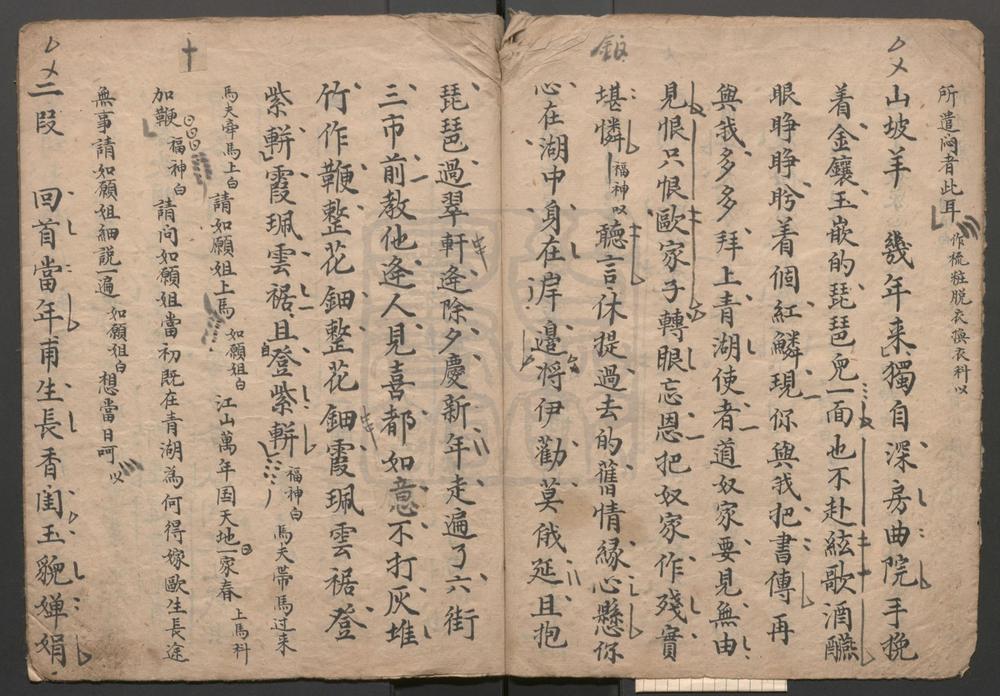 所遣闷者此耳 作梳粧脱衣換衣科以
山坡羊 幾年来獨自深房曲院手挽
着金鑲玉嵌的琵琶皃一面也不赴絃歌酒醼
眼睁睁盻着個紅鱗現你與我把書傳再
與我多多拜上青湖使者道奴家要見無由
見恨只恨歐家子轉眼忘恩把奴家作殘實
堪憐 福神以 聽言休提過去的舊情緣心懸你
心在湖中身在岸邉将伊勸莫俄延且抱
琵琶過翠軒逄除夕慶新年走遍了六街
三市前教他逄人見喜都如意不打灰堆
竹作鞭整花鈿整花鈿霞珮雲裾登
紫軿霞珮雲裾且登紫軿 福神白 馬夫帶馬过来
馬夫帶馬上白 請如願姐上馬 如願姐白 江山萬年国天地一家春 上馬科
加鞭 福神白 請问如願姐當初既在青湖為何得嫁歐生長途
無事請如願姐細說一遍 如願姐白 想當日呵 以
二段 回首當年甫生長香闺玉貌婵娟